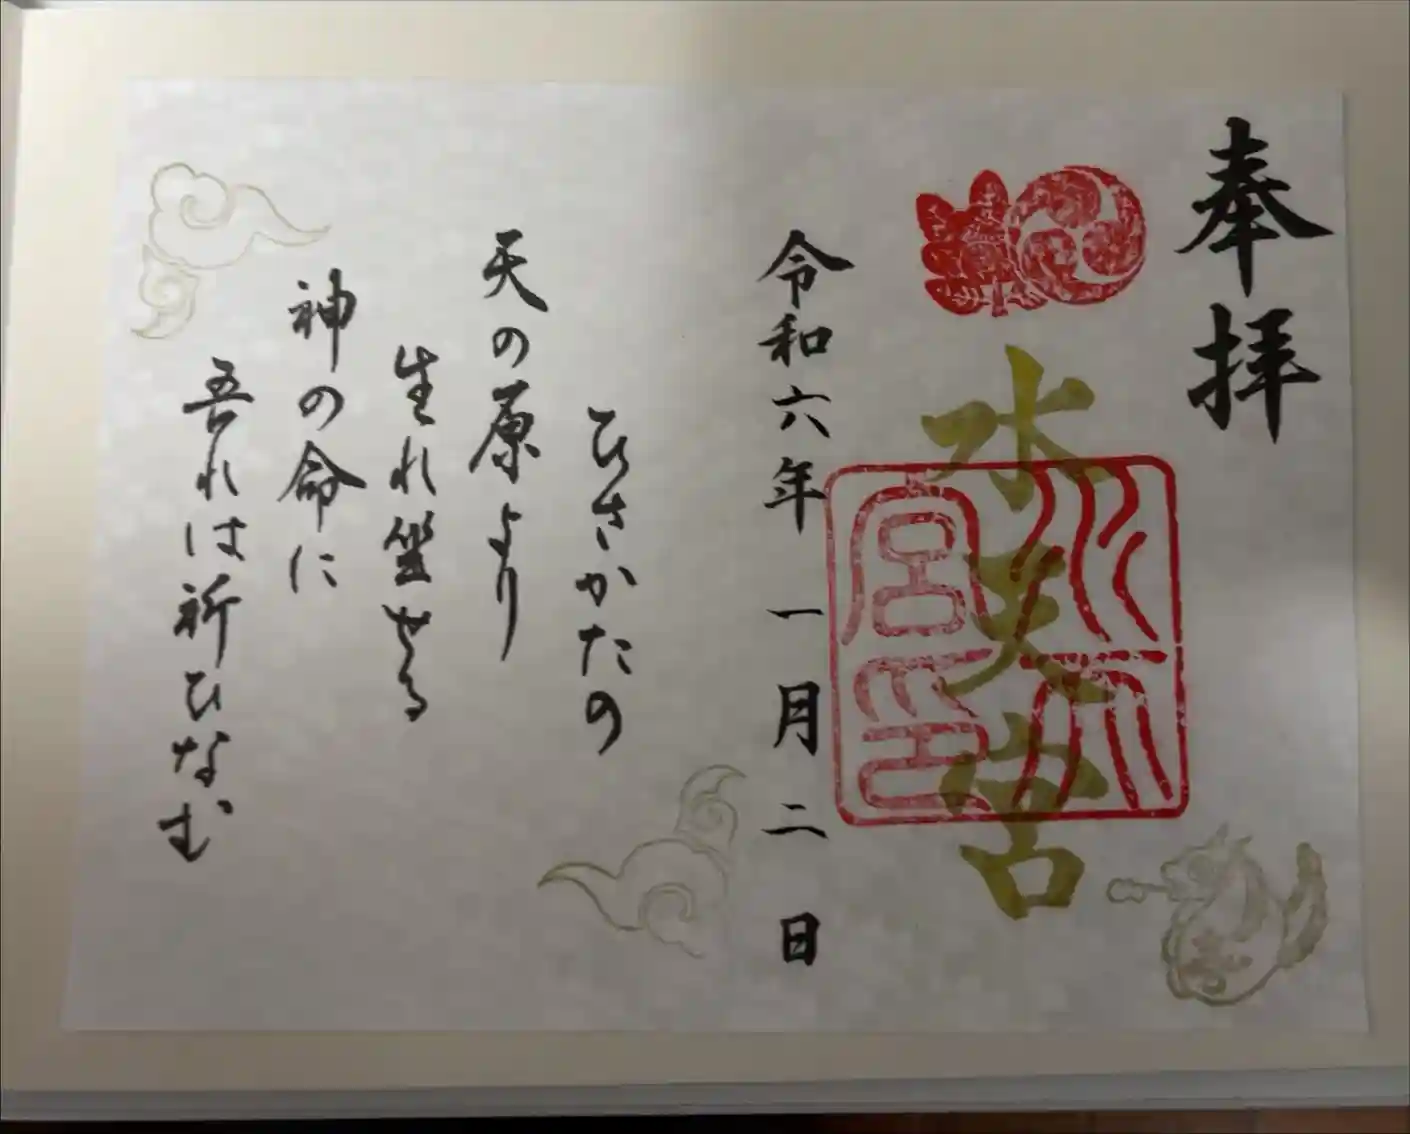 奉拝
水天宮
水天宮印
令和六年 一月二日
ひさかたの
天の原より
生れ坐せる
神の命に
吾れは祈ひなむ